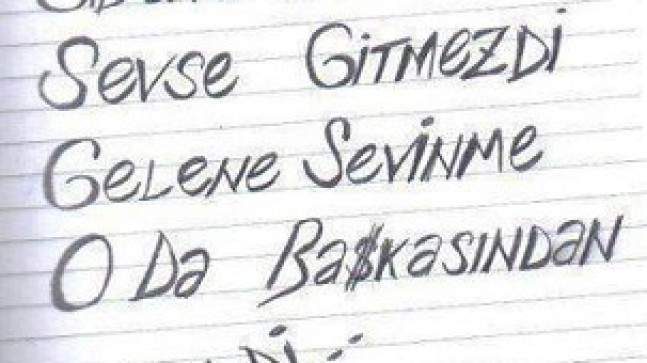 Sevse Gitmezdi
Gelene Sevinme
O Da Ba$kasından